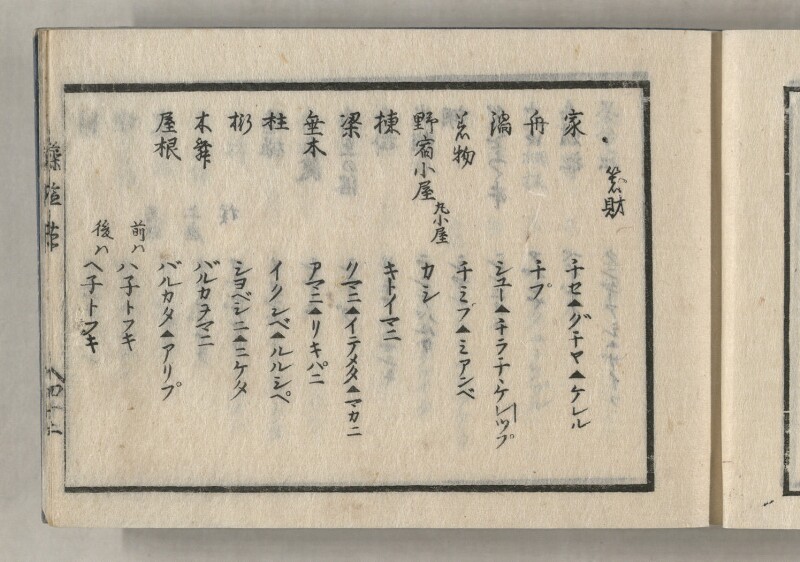 器財
家 チセ▲グチヤ▲ケレル
舟 チプ
鍋 シユー▲チラチケレツプ
着物 チミプ▲ミアンベ
野宿小屋 丸小屋 カシ
棟 キトイマニ
梁 クマニ▲イテメタ▲マカニ
垂木 アマニ▲リキパニ
柱 イクシベ▲ルルシペ
桁 シヨベシニ▲ニケタ
木舞 バルカヲマニ
屋根 バルカタ▲アリプ
前ハ ハ子トフキ
後ハ ヘ子トフキ